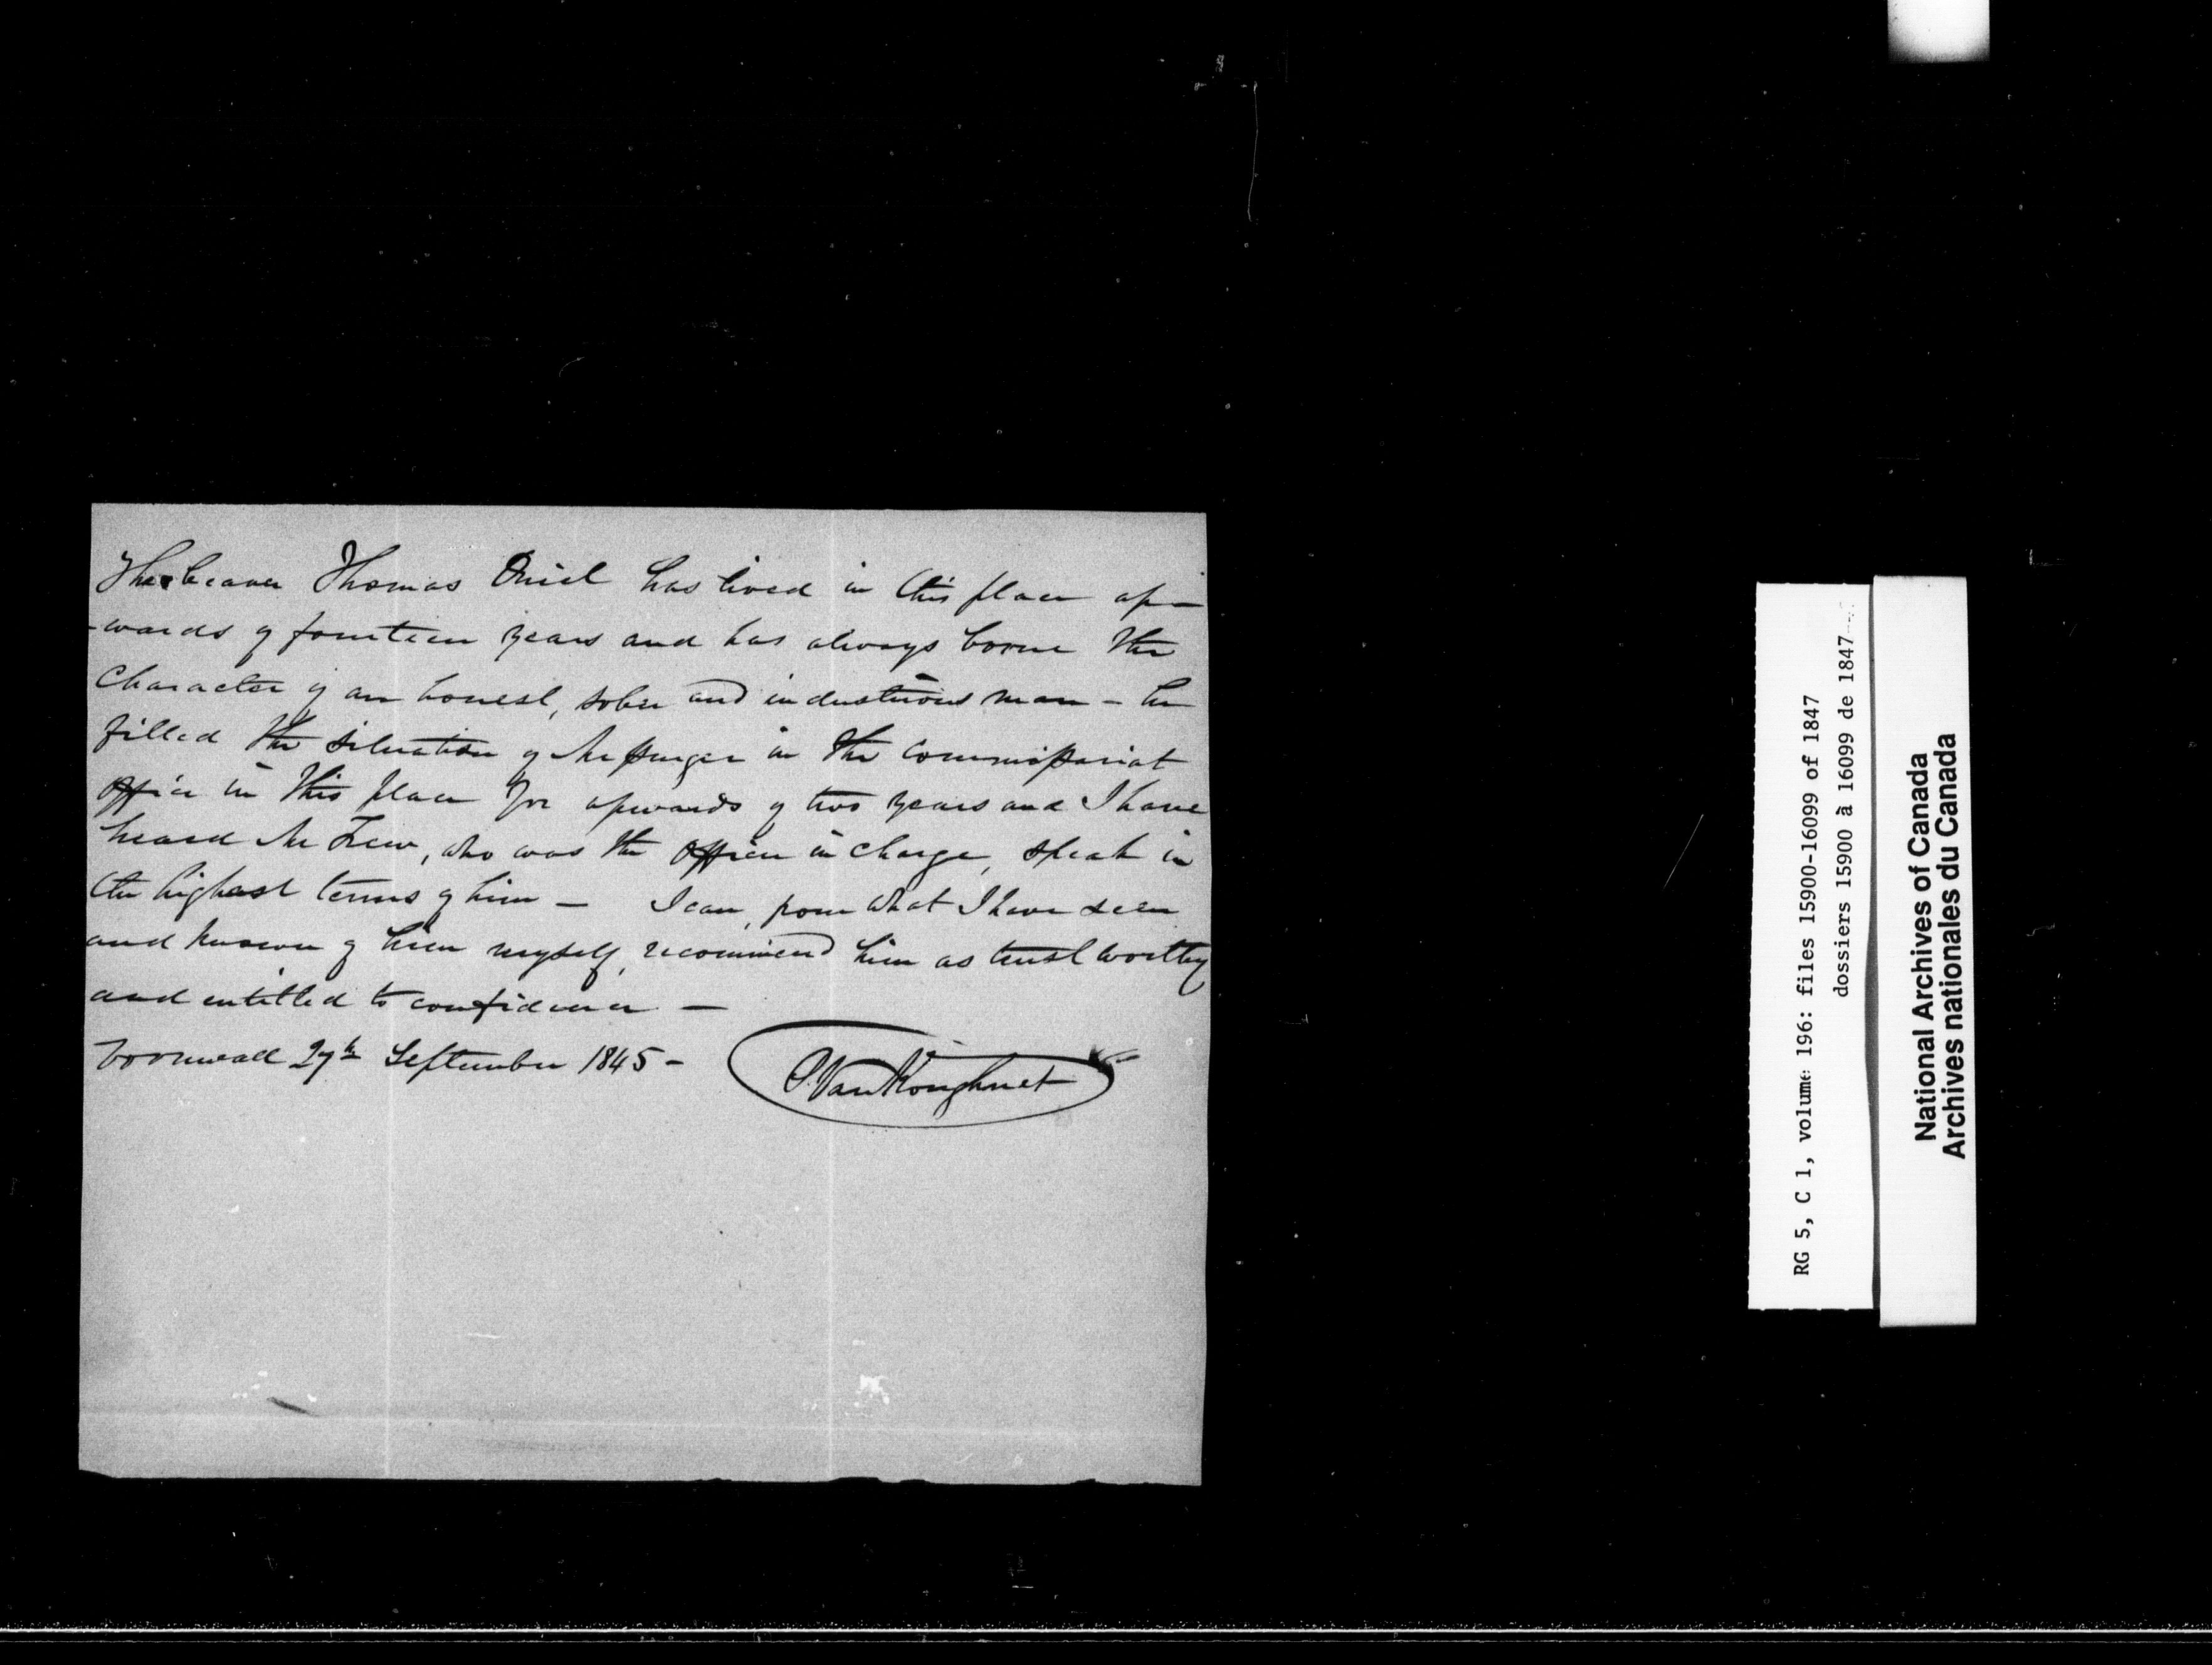 The bearer Thomas Oniel has lived in this place up-
-wards of fourteen years and has always borne the
Character of an honest, sober and industrious man - he
filled the situation of Messenger in the Commissariat
Office in this place for upwards of two years and I have
heard Mr Trew, who was the Officer in charge, speak in
the highest terms of him — I can, from what I have seen
and known of him myself, recommend him as trustworthy
and entitled to confidence —
Cornwall 27th September 1845 -
P. VanKoughnet
RG 5, C 1, volume 196: files 15900-16099 of 1847
dossiers 15900 à 16099 de 1847
National Archives of Canada
Archives nationales du Canada